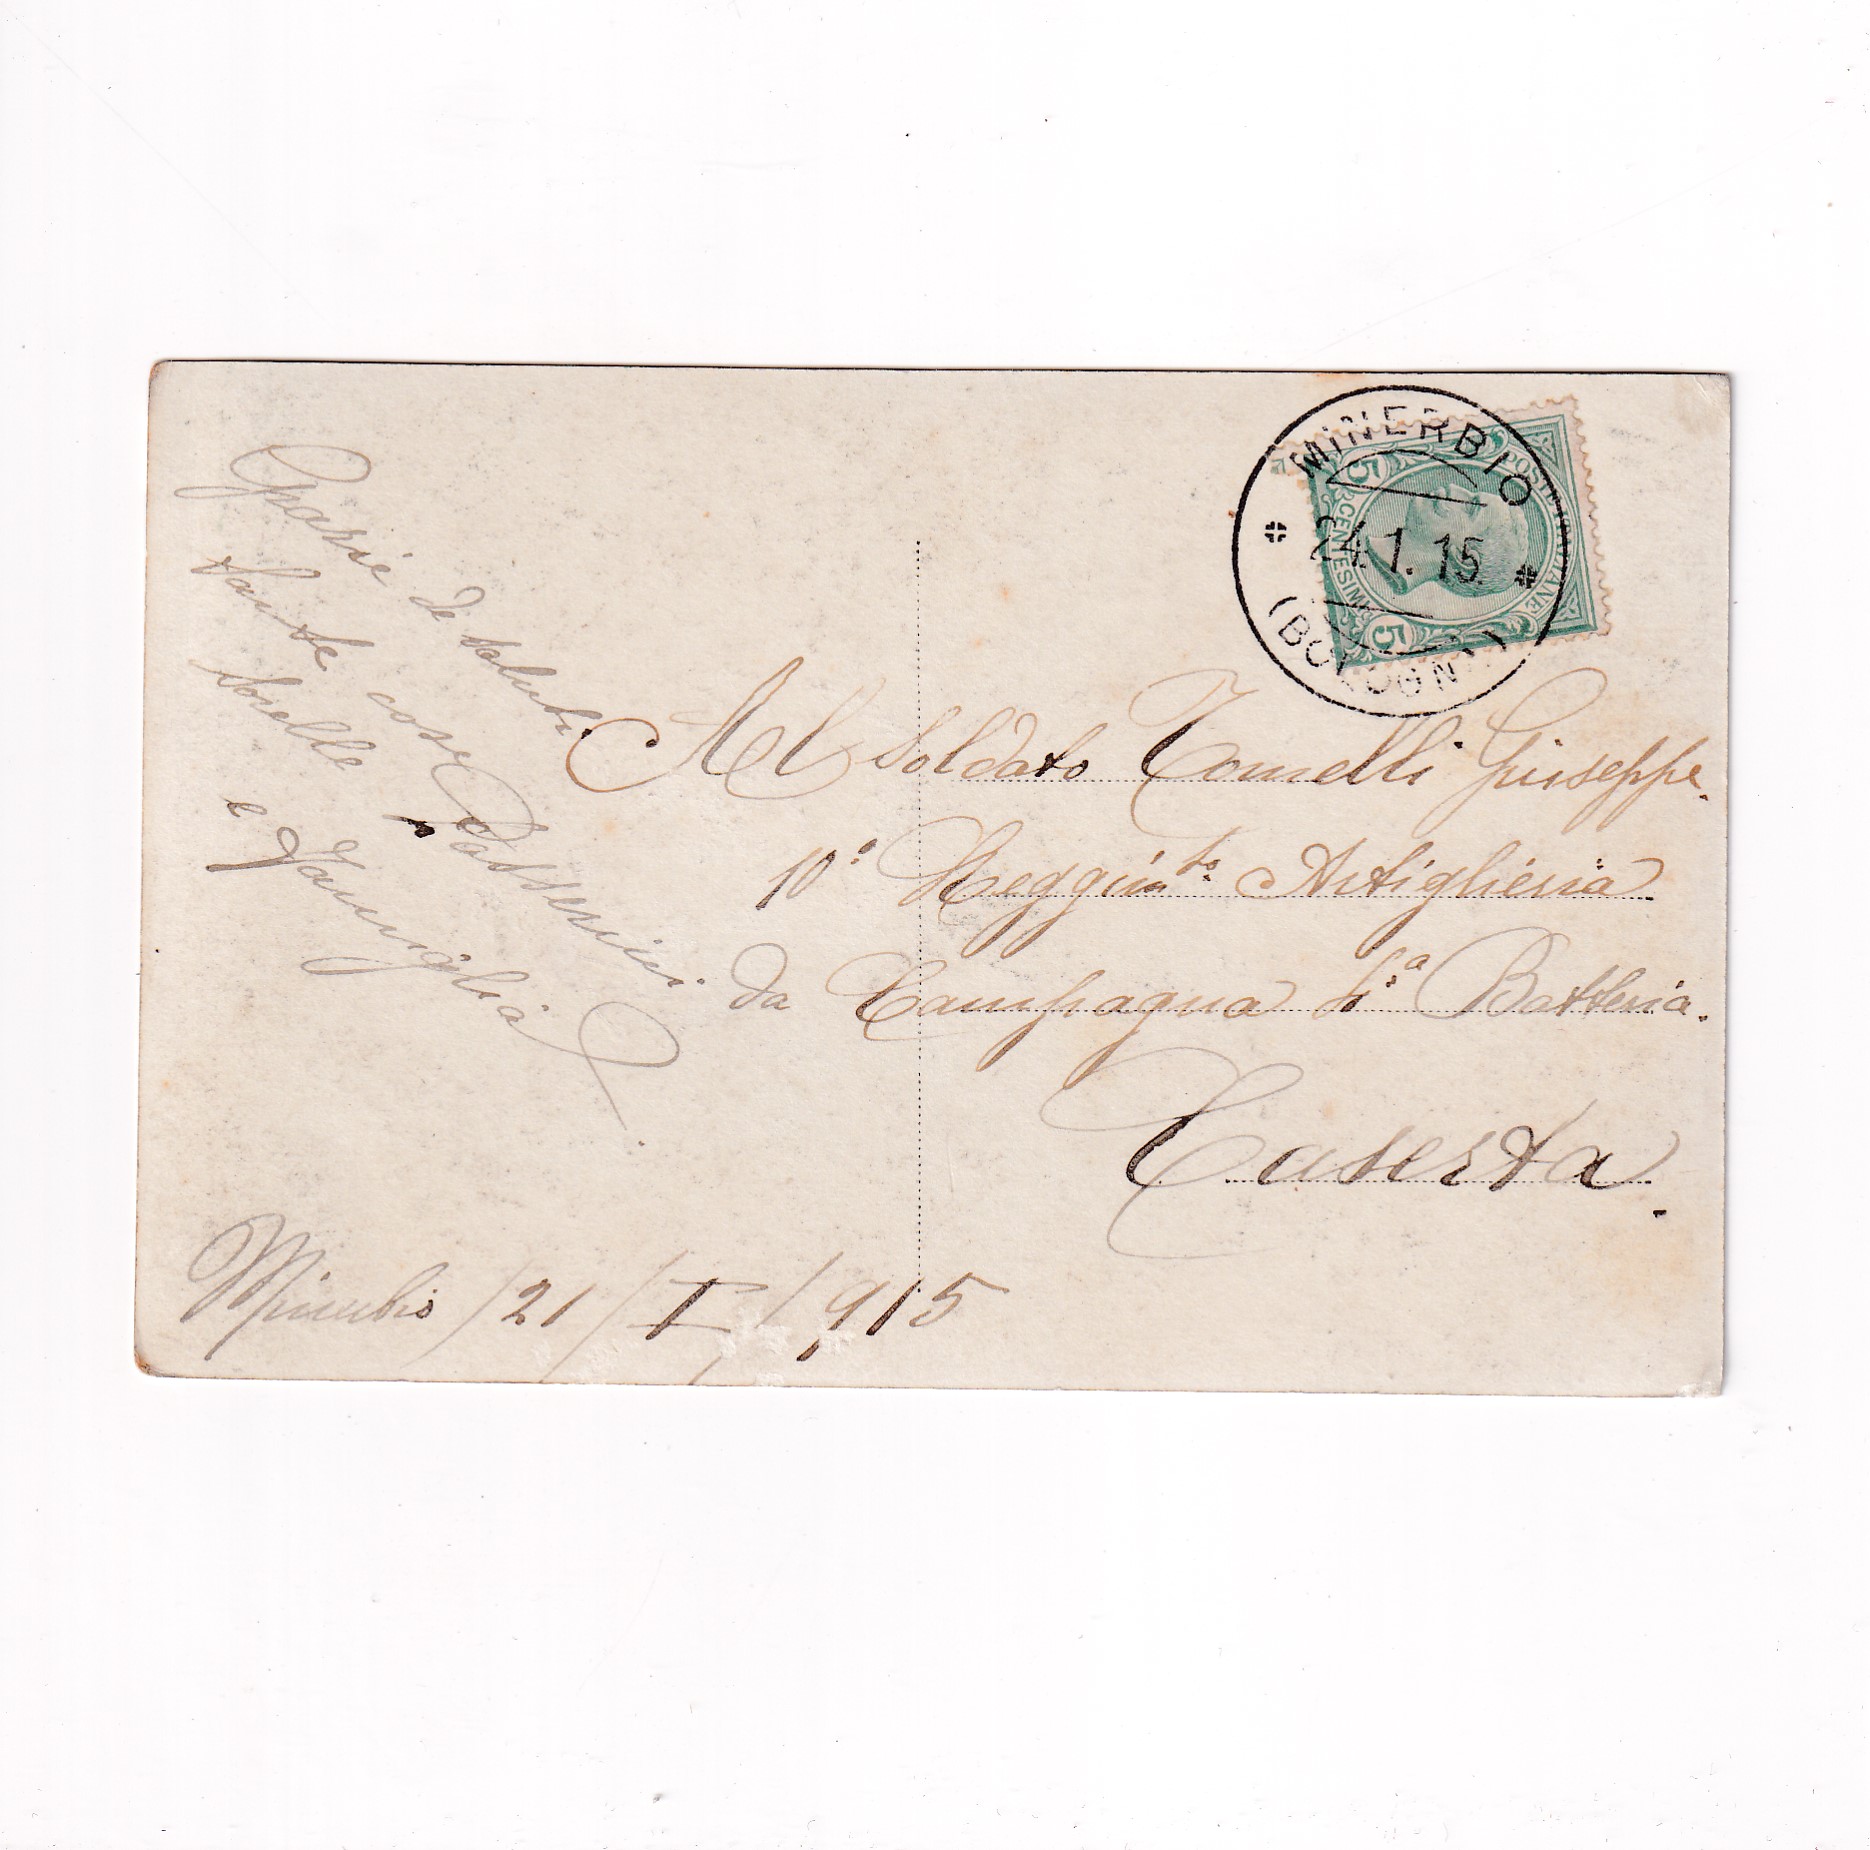 Grazie de saluti
tante cose
sorelle Passerini
e Famiglia
Minerbio / 21 / I / 915
MINERBIO
24.1.15
(BOLOGNA)
POSTE ITALIANE
5 CENTESIMI 5
Al Soldato Tomelli Giuseppe.
10° Reggim.to Artiglieria
da Campagna Batteria.
Caserta.